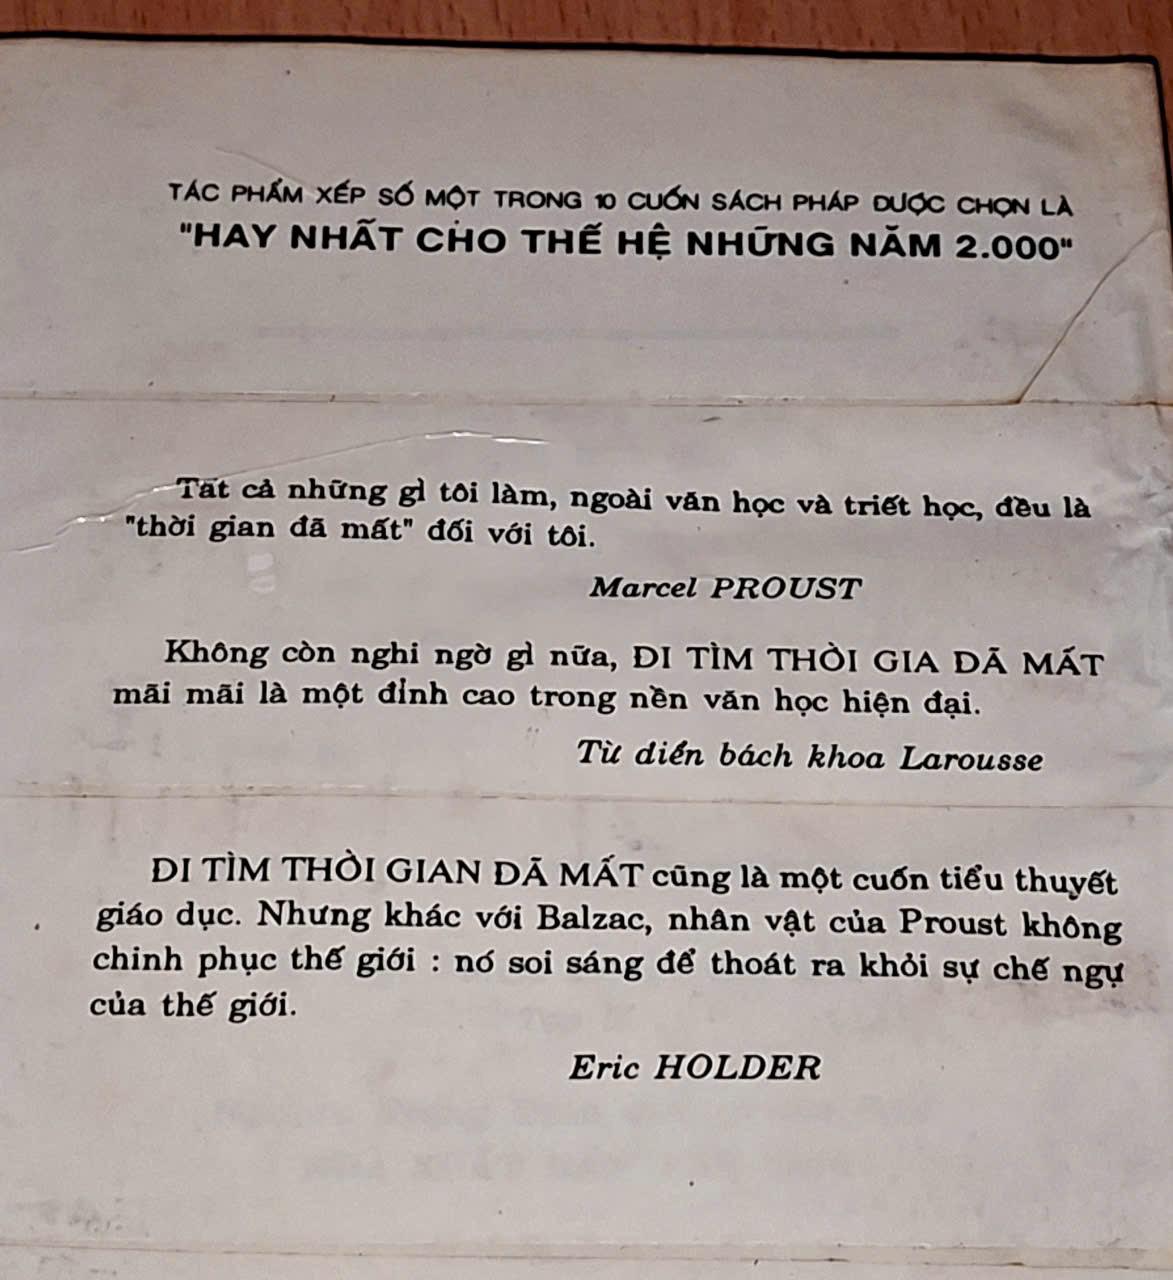 TÁC PHẨM XẾP SỐ MỘT TRONG 10 CUỐN SÁCH PHÁP ĐƯỢC CHỌN LÀ
"HAY NHẤT CHO THẾ HỆ NHỮNG NĂM 2.000"
Tất cả những gì tôi làm, ngoài văn học và triết học, đều là
"thời gian đã mất" đối với tôi.
Marcel PROUST
Không còn nghi ngờ gì nữa, ĐI TÌM THỜI GIA ĐÃ MẤT
mãi mãi là một đỉnh cao trong nền văn học hiện đại.
Từ điển bách khoa Larousse
ĐI TÌM THỜI GIAN ĐÃ MẤT cũng là một cuốn tiểu thuyết
giáo dục. Nhưng khác với Balzac, nhân vật của Proust không
chinh phục thế giới : nó soi sáng để thoát ra khỏi sự chế ngự
của thế giới.
Eric HOLDER